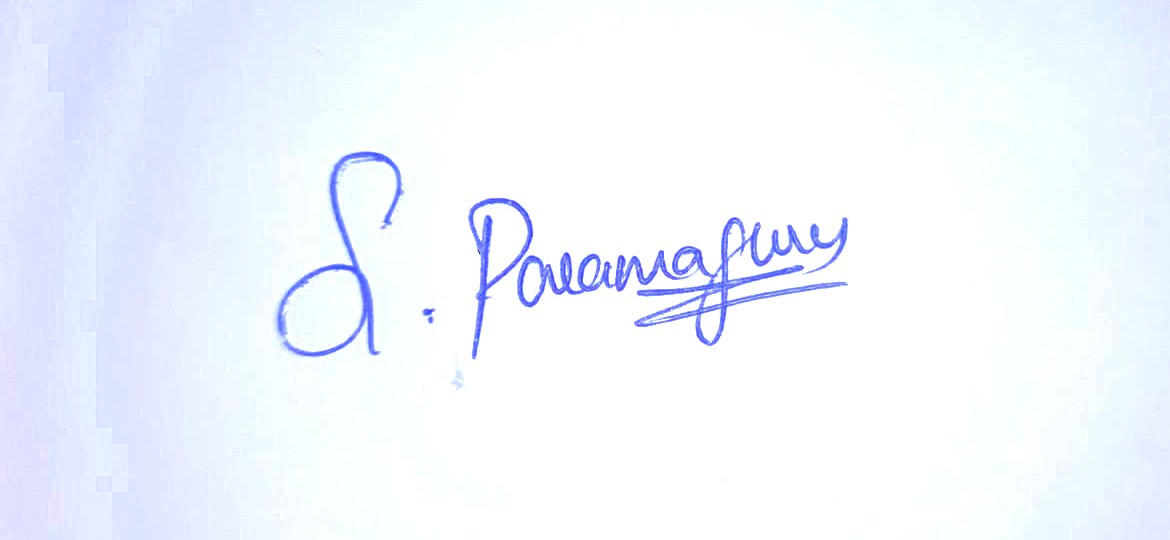 S. Paramaguru